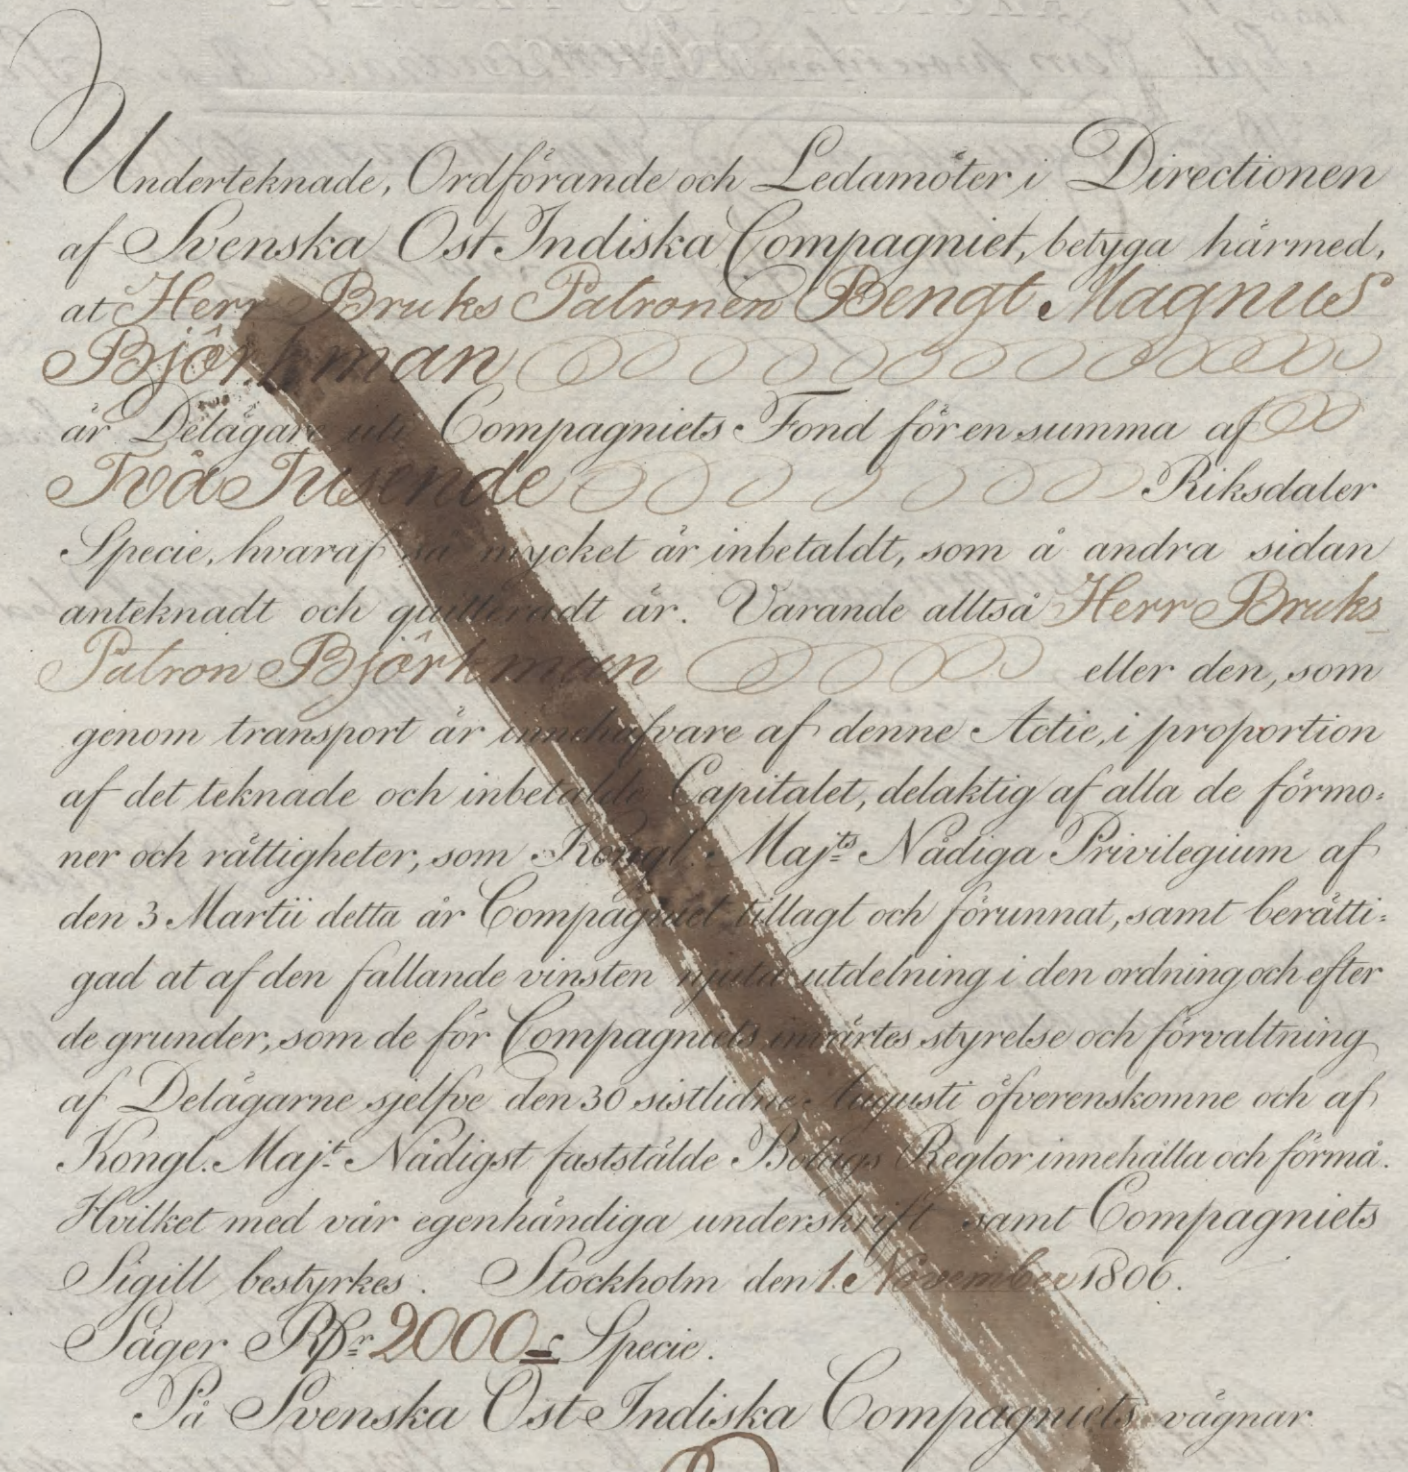 Underteknade, Ordförande och Ledamöter i Directionen
af Svenska Ost Indiska Compagniet, betyga härmed,
at Herr Bruks Patronen Bengt Magnus
Björkman
är Delägare uti Compagniets Fond för en summa af
Två Tusende Riksdaler
Specie, hvaraf så mycket är inbetaldt, som å andra sidan
anteknadt och quitteradt är. Varande alltså Herr Bruks
Patron Björkman eller den, som
genom transport är innehafvare af denne Actie, i proportion
af det teknade och inbetalde Capitalet, delaktig af alla de förmo=
ner och rättigheter, som Kongl. Maj:ts Nådiga Privilegium af
den 3 Martii detta år Compagniet tillagt och förunnat, samt berätti=
gad at af den fallande vinsten njuta utdelning i den ordning och efter
de grunder, som de för Compagniets invärtes styrelse och förvaltning
af Delägarne sjelfve den 30 sistlidne Augusti öfverenskomne och af
Kongl. Maj:t Nådigst fastställde Bolags Reglor innehålla och förmå.
Hvilket med vår egenhändiga underskrift samt Compagniets
Sigill bestyrkes. Stockholm den 1. November 1806.
Säger Rdr 2000 Specie.
På Svenska Ost Indiska Compagniets vägnar